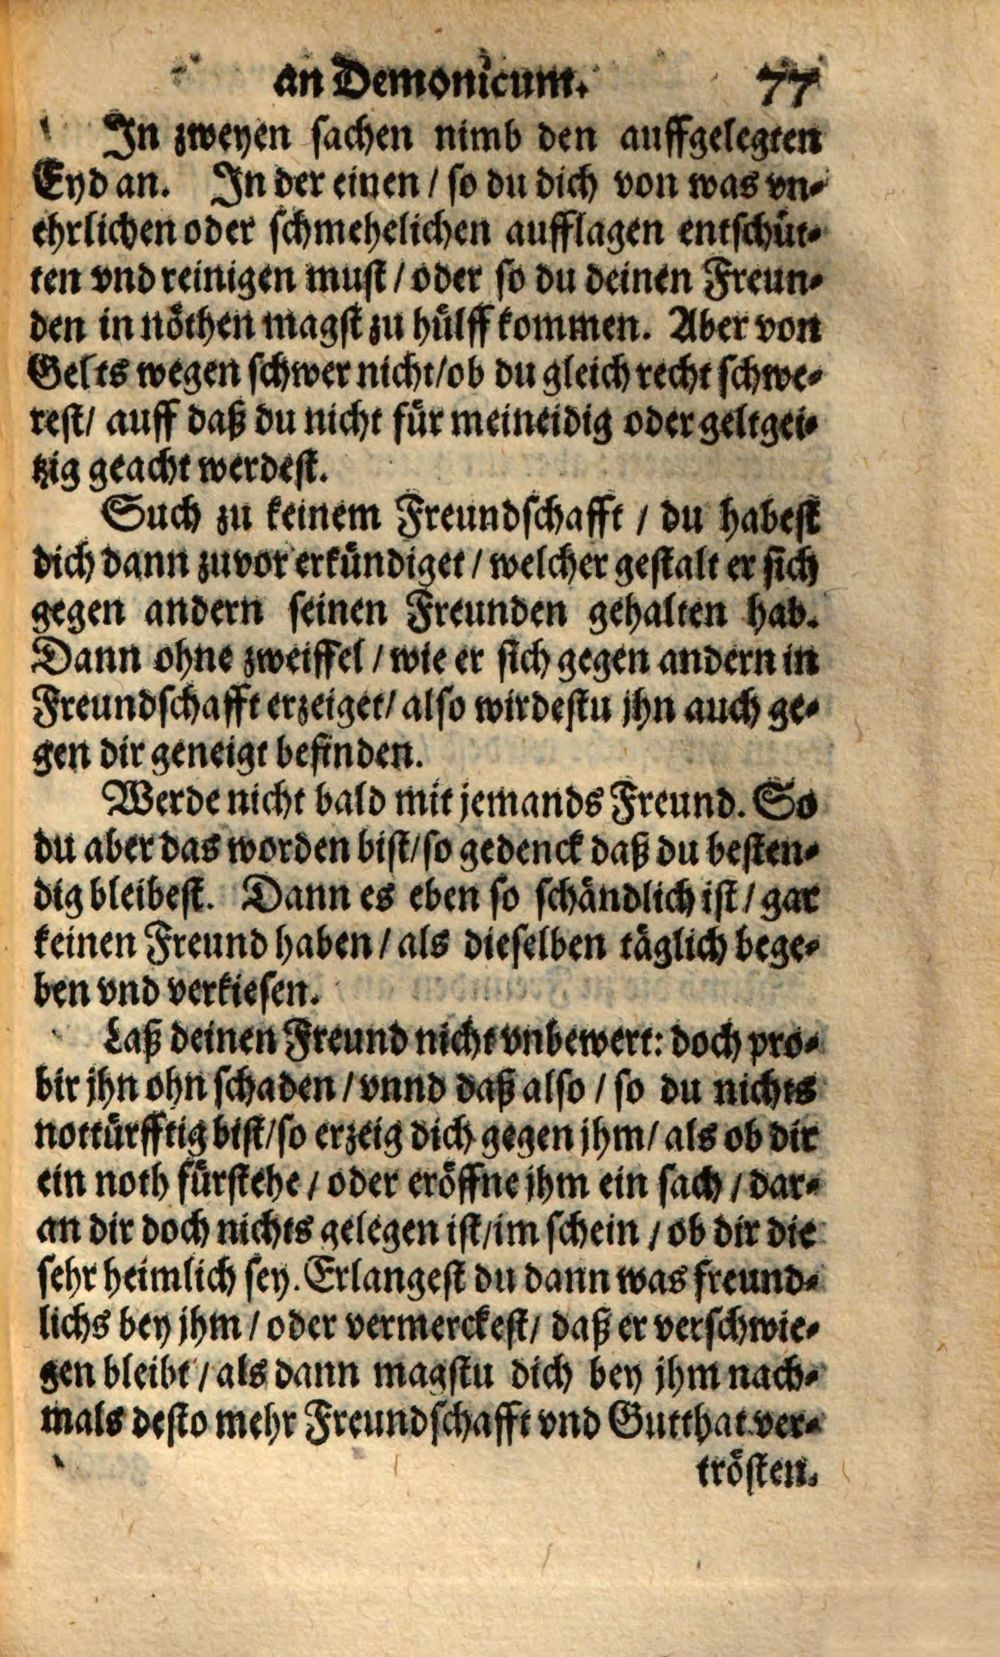 an Demonicum. 77
In zweyen sachen nimb den auffgelegten
Eyd an. In der einen / so du dich von was vn-
ehrlichen oder schmehelichen aufflagen entschüt-
ten vnd reinigen must / oder so du deinen Freun-
den in nöthen magst zu hülff kommen. Aber von
Gelts wegen schwer nicht / ob du gleich recht schwe-
rest / auff daß du nicht für meineidig oder geltgei-
tzig geacht werdest.
Such zu keinem Freundschafft / du habest
dich dann zuvor erkündiget / welcher gestalt er sich
gegen andern seinen Freunden gehalten hab.
Dann ohne zweiffel / wie er sich gegen andern in
Freundschafft erzeiget / also wirdestu jhn auch ge-
gen dir geneigt befinden.
Werde nicht bald mit jemands Freund. So
du aber das worden bist / so gedenck daß du besten-
dig bleibest. Dann es eben so schändlich ist / gar
keinen Freund haben / als dieselben täglich bege-
ben vnd verkiesen.
Laß deinen Freund nicht vnbewert: doch pro-
bir jhn ohn schaden / vnnd daß also / so du nichts
nottürfftig bist / so erzeig dich gegen jhm / als ob dir
ein noth fürstehe / oder eröffne jhm ein sach / dar-
an dir doch nichts gelegen ist / im schein / ob dir die
sehr heimlich sey. Erlangest du dann was freund-
lichs bey jhm / oder vermerckest / daß er verschwie-
gen bleibt / als dann magstu dich bey jhm nach-
mals desto mehr Freundschafft vnd Gutthat ver-
trösten.